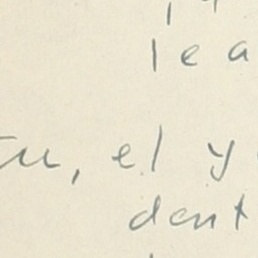 lea
u, el y
dent